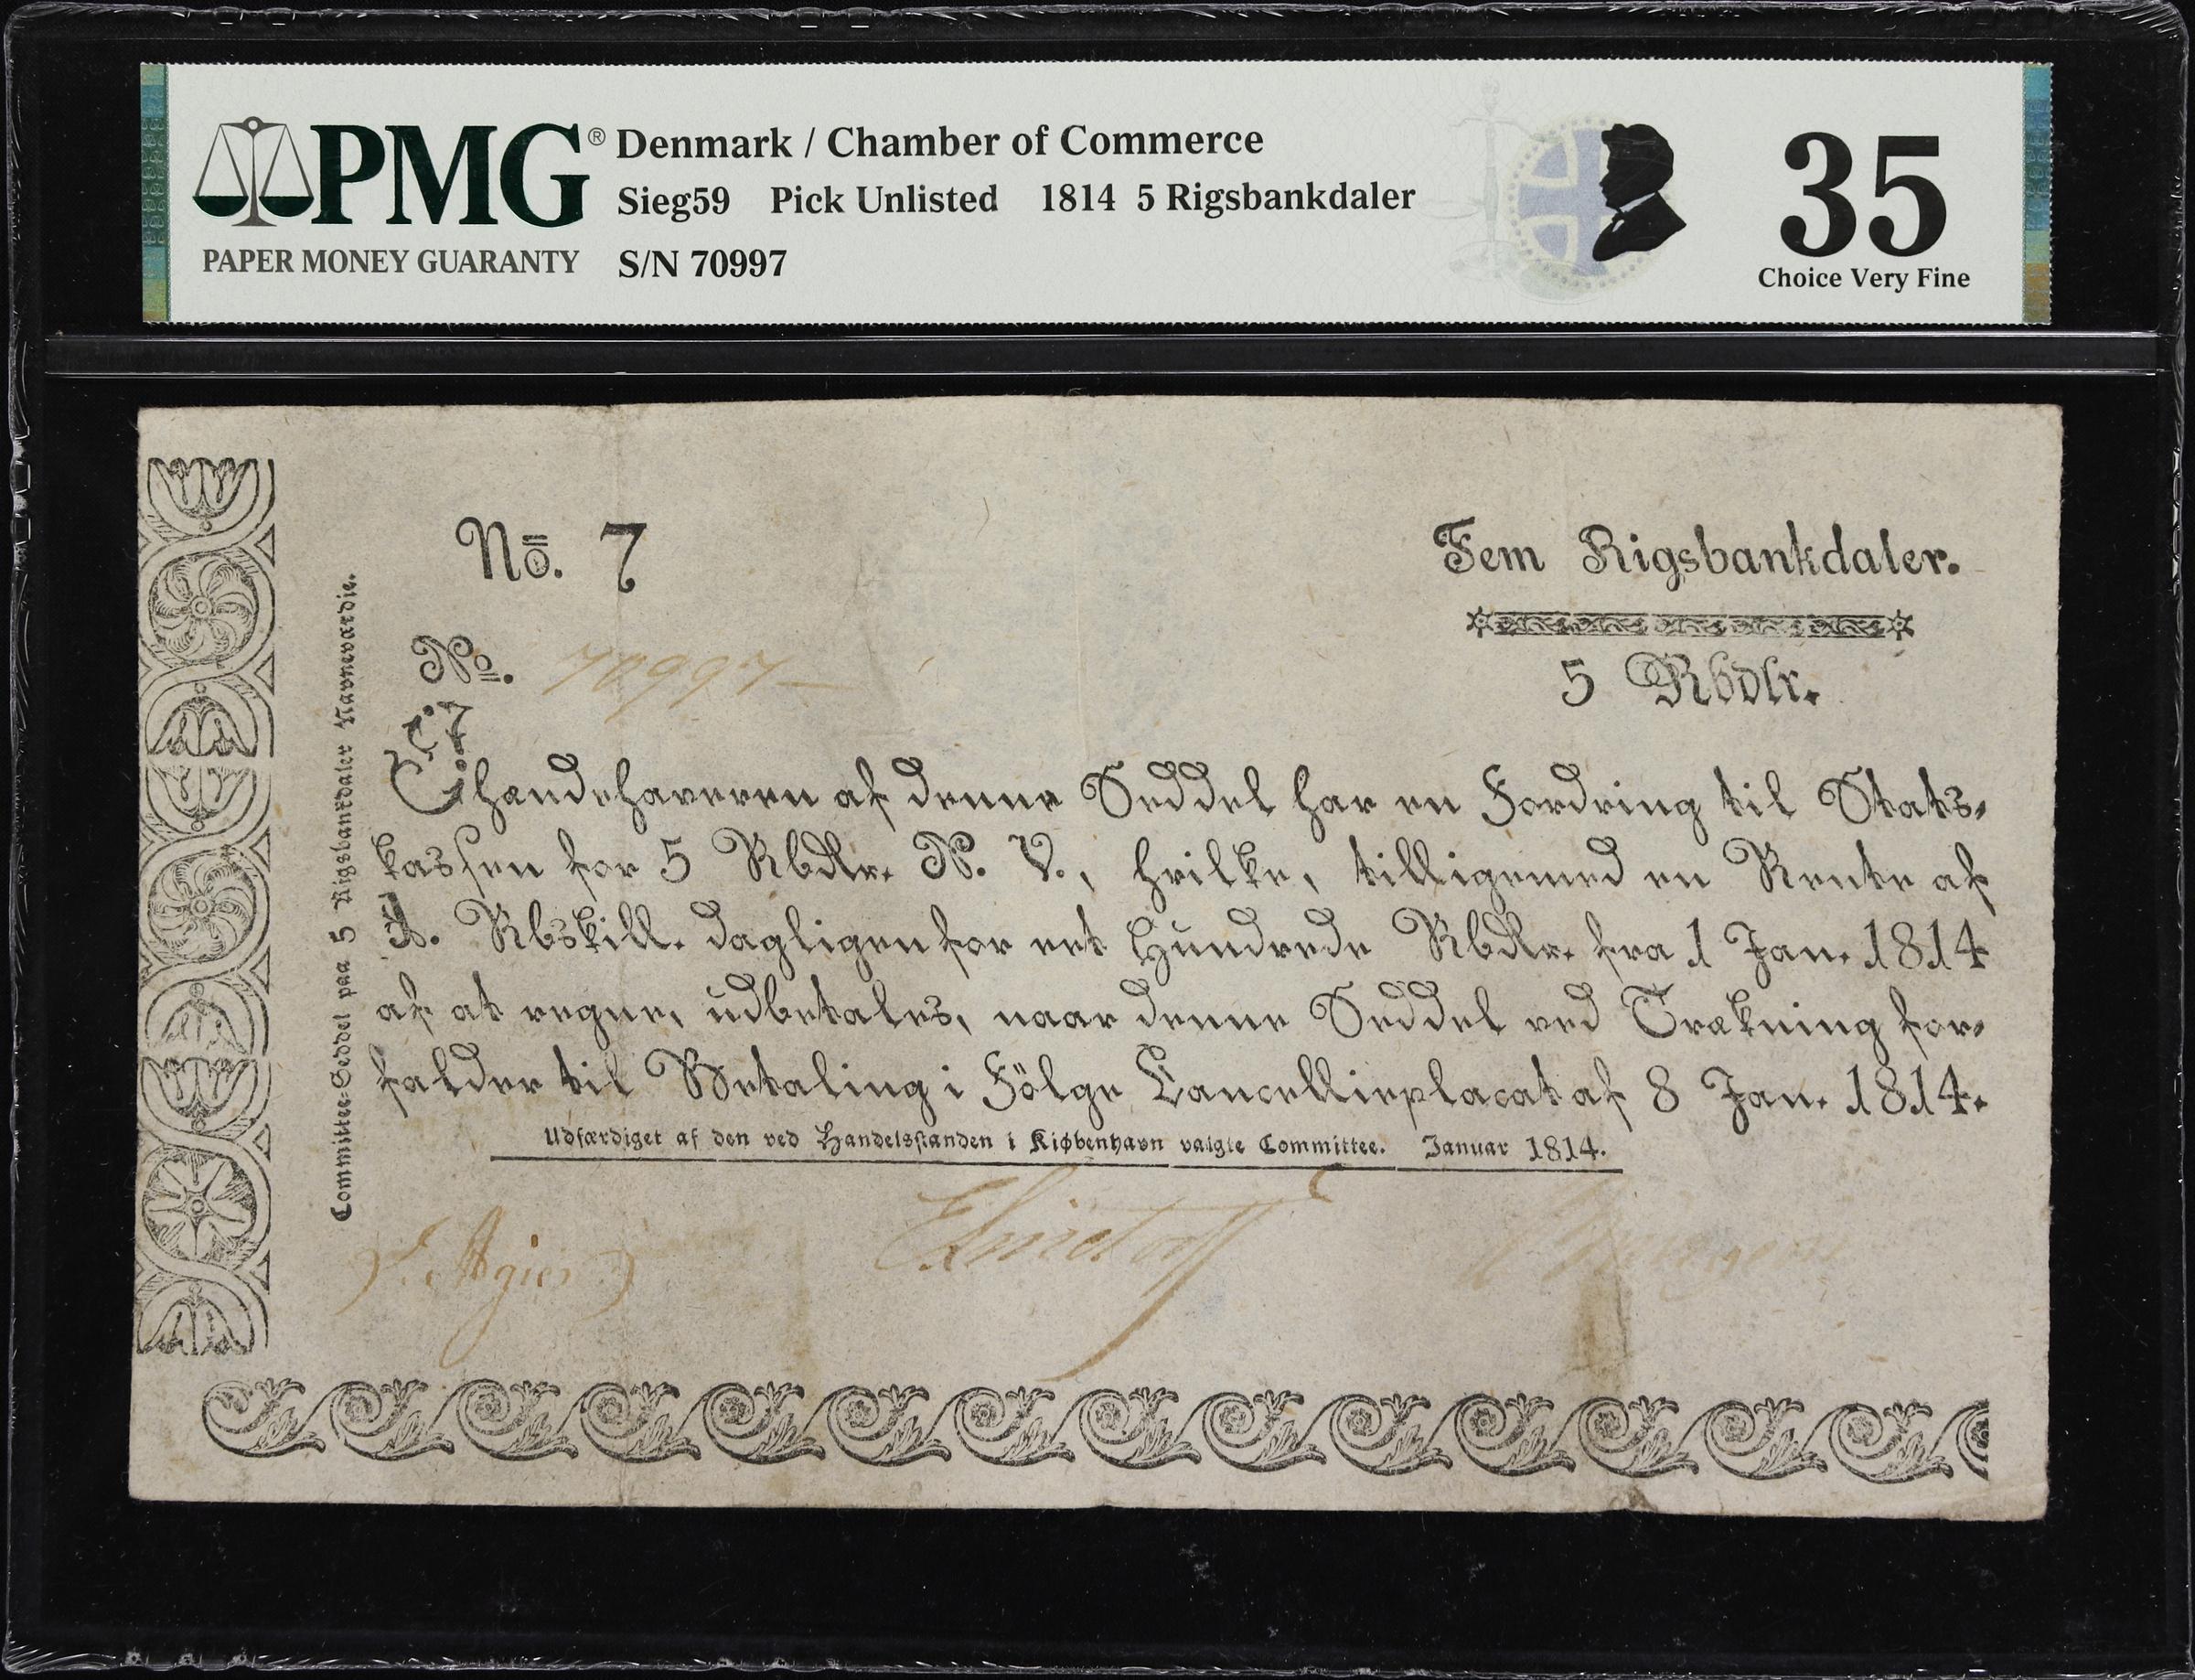 PMG® Denmark / Chamber of Commerce
Sieg59 Pick Unlisted 1814 5 Rigsbankdaler
PAPER MONEY GUARANTY S/N 70997
35
Choice Very Fine
No. 7
Fem Rigsbankdaler.
No. 70997
5 Rbdlr.
Ihændehaveren af denne Seddel har en Fordring til Stats-
kassen for 5 Rbdlr. N. V., hvilke, tilligemed en Rente af
1. Rbskill. dagligen for eet Hundrede Rbdlr. fra 1 Jan. 1814
af at regne, udbetales, naar denne Seddel ved Trækning for-
falder til Betaling i Fölge Cancellieplacat af 8 Jan. 1814.
Udfærdiget af den ved Handelsstanden i Kiøbenhavn valgte Committee. Januar 1814.
Committee-Seddel paa 5 Rigsbankdaler Navneværdie.